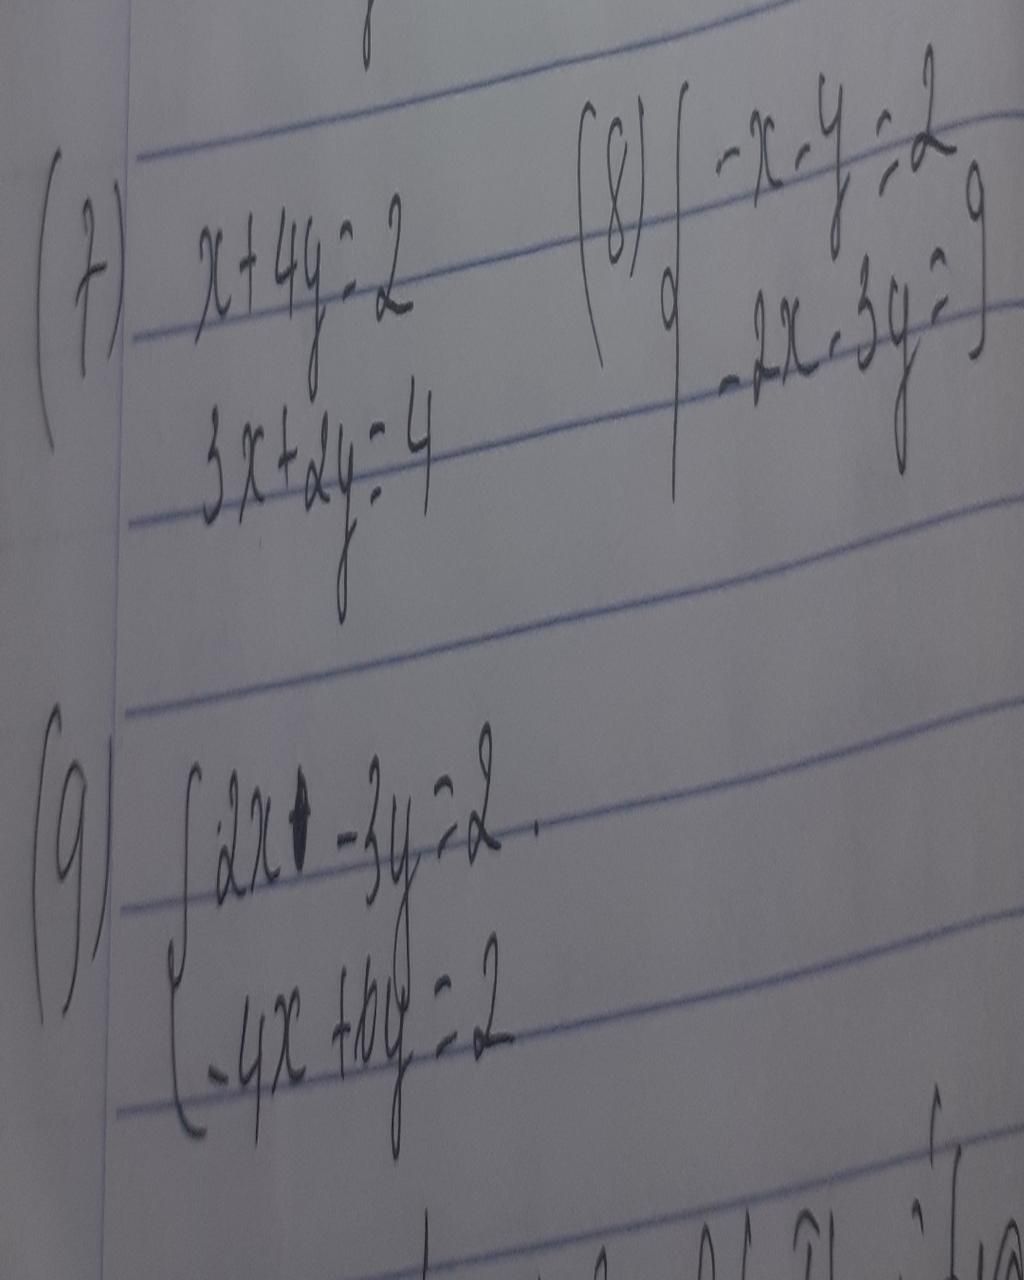 (7) x+4y=2
3x+2y=4
(8) -x-y=2
-2x-3y=9
(9) 2x -3y=2.
-4x+6y=2